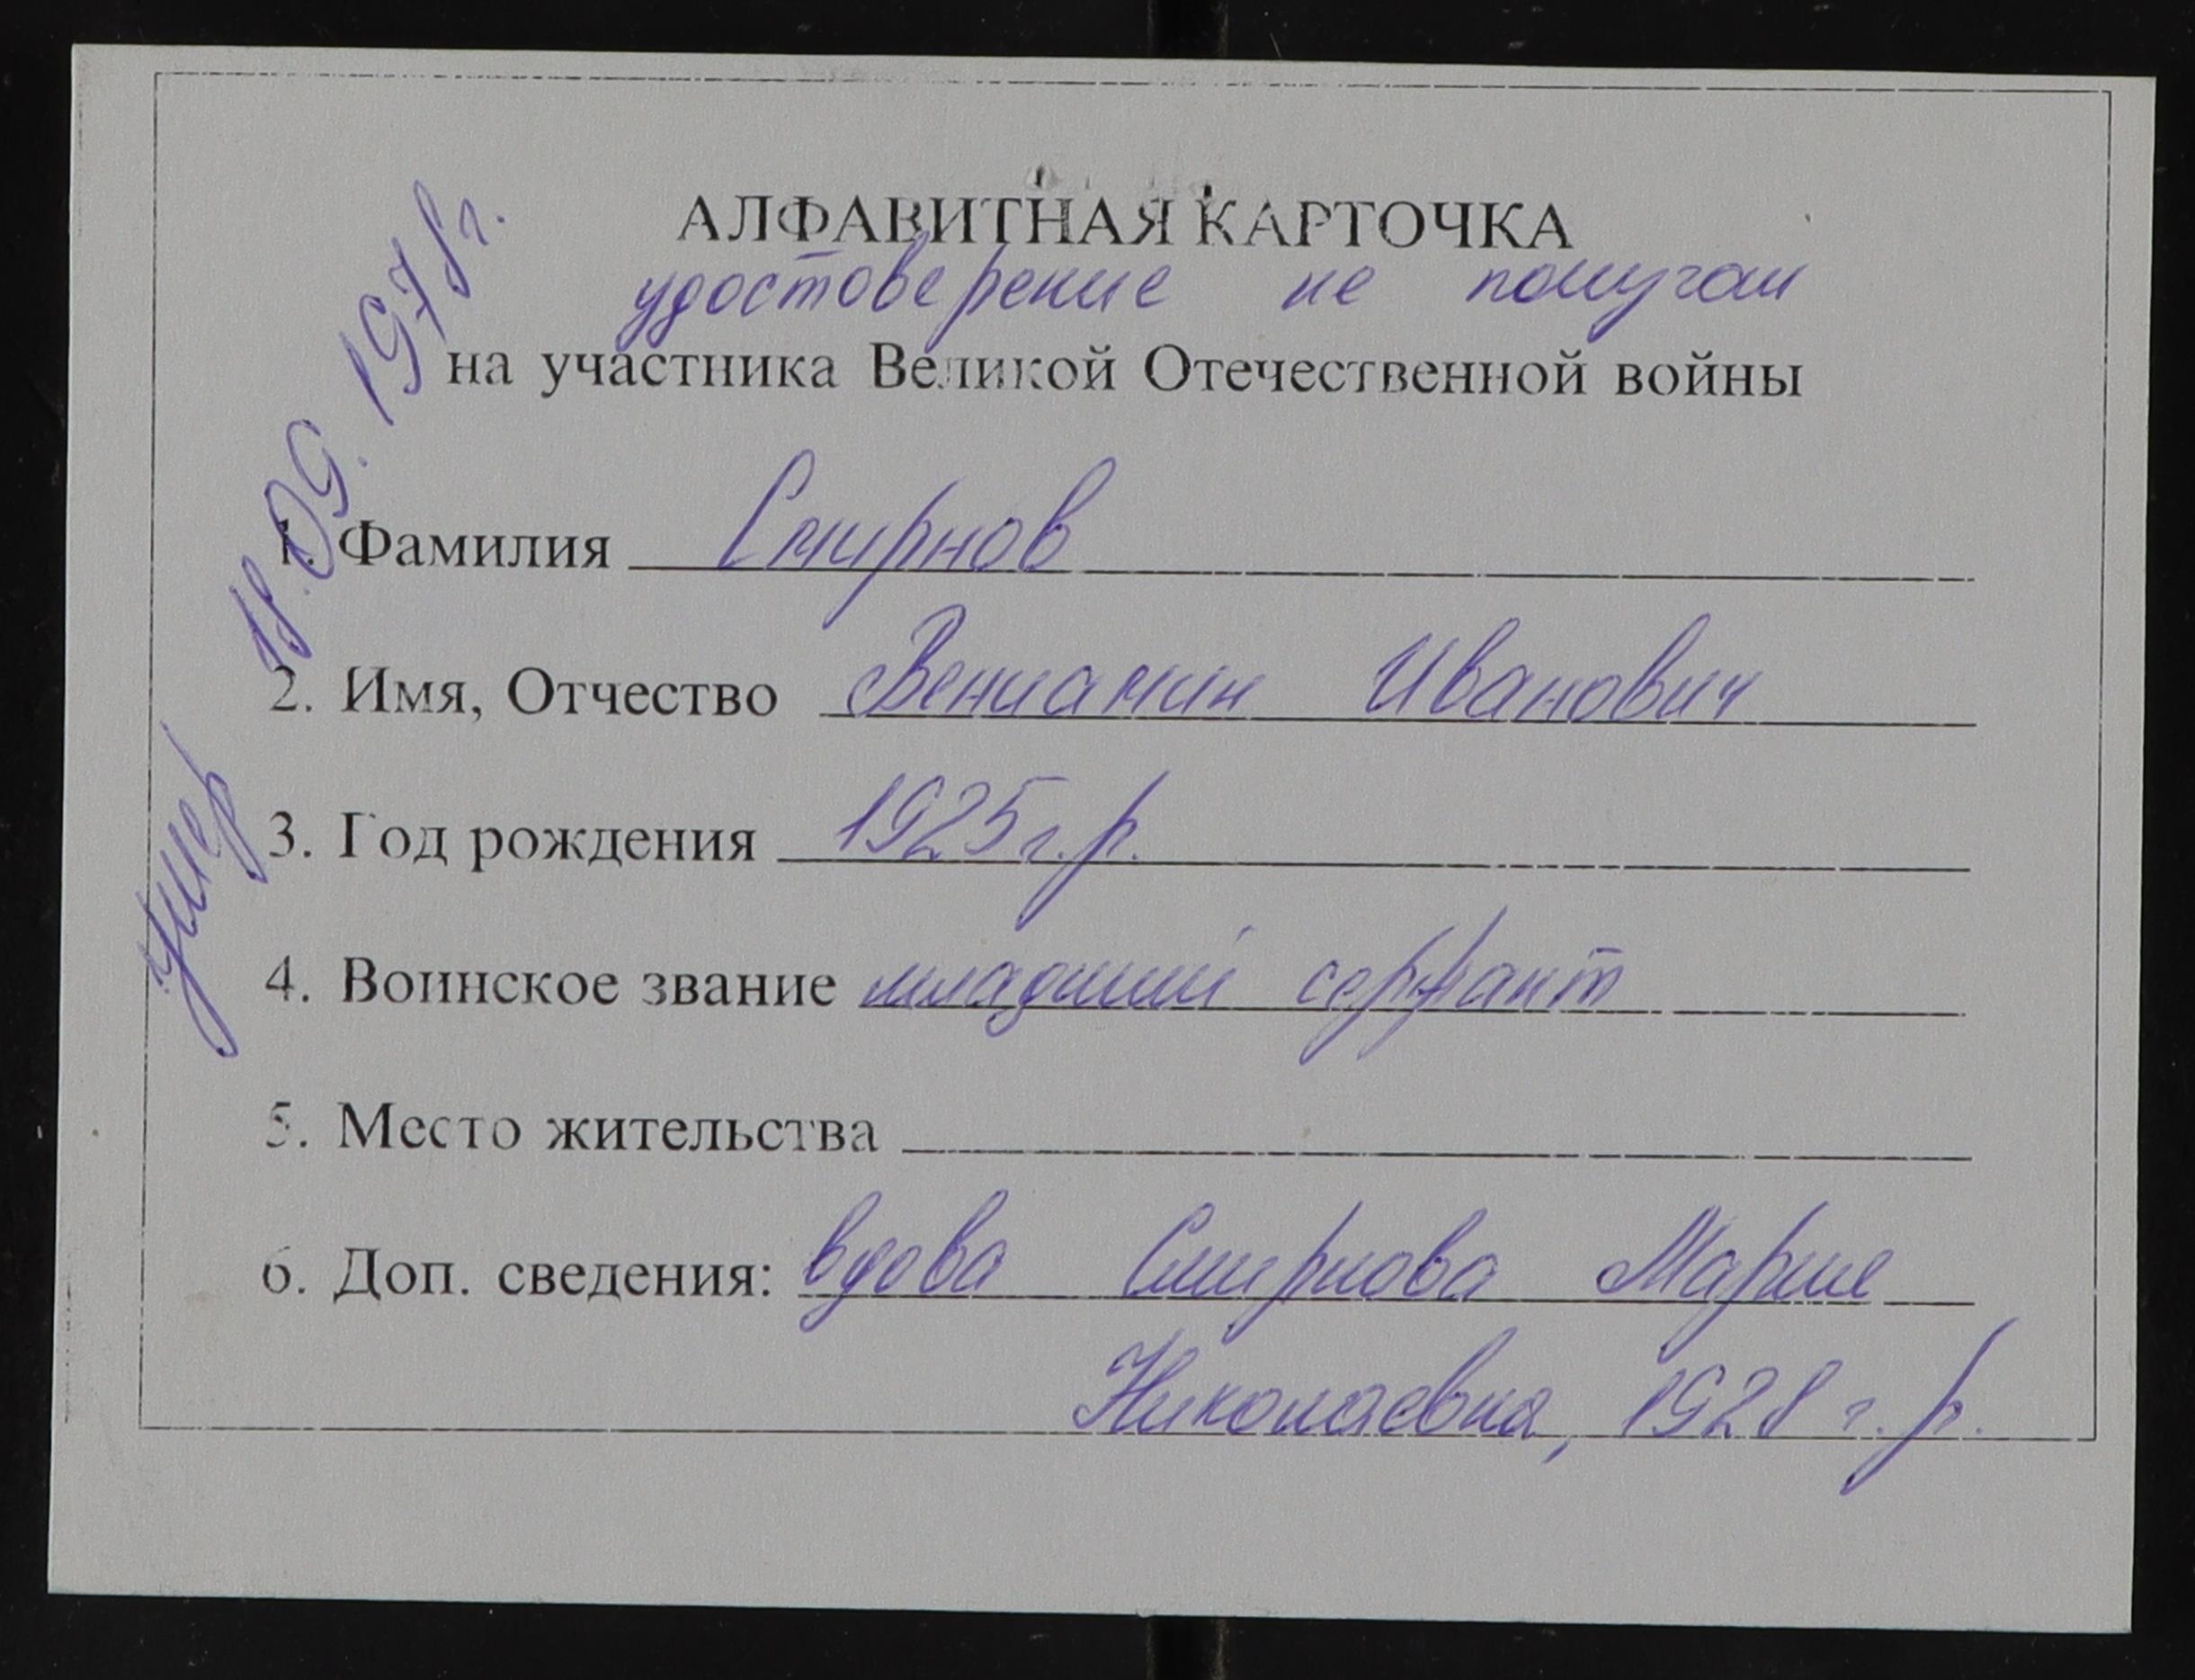 АЛФАВИТНАЯ КАРТОЧКА
удостоверение не получал
на участника Великой Отечественной войны
умер 18.09.1978г.
1. Фамилия Смирнов
2. Имя, Отчество Вениамин Иванович
3. Год рождения 1925 г.р.
4. Воинское звание младший сержант
5. Место жительства
6. Доп. сведения: вдова Смирнова Мария
Николаевна, 1928 г.р.